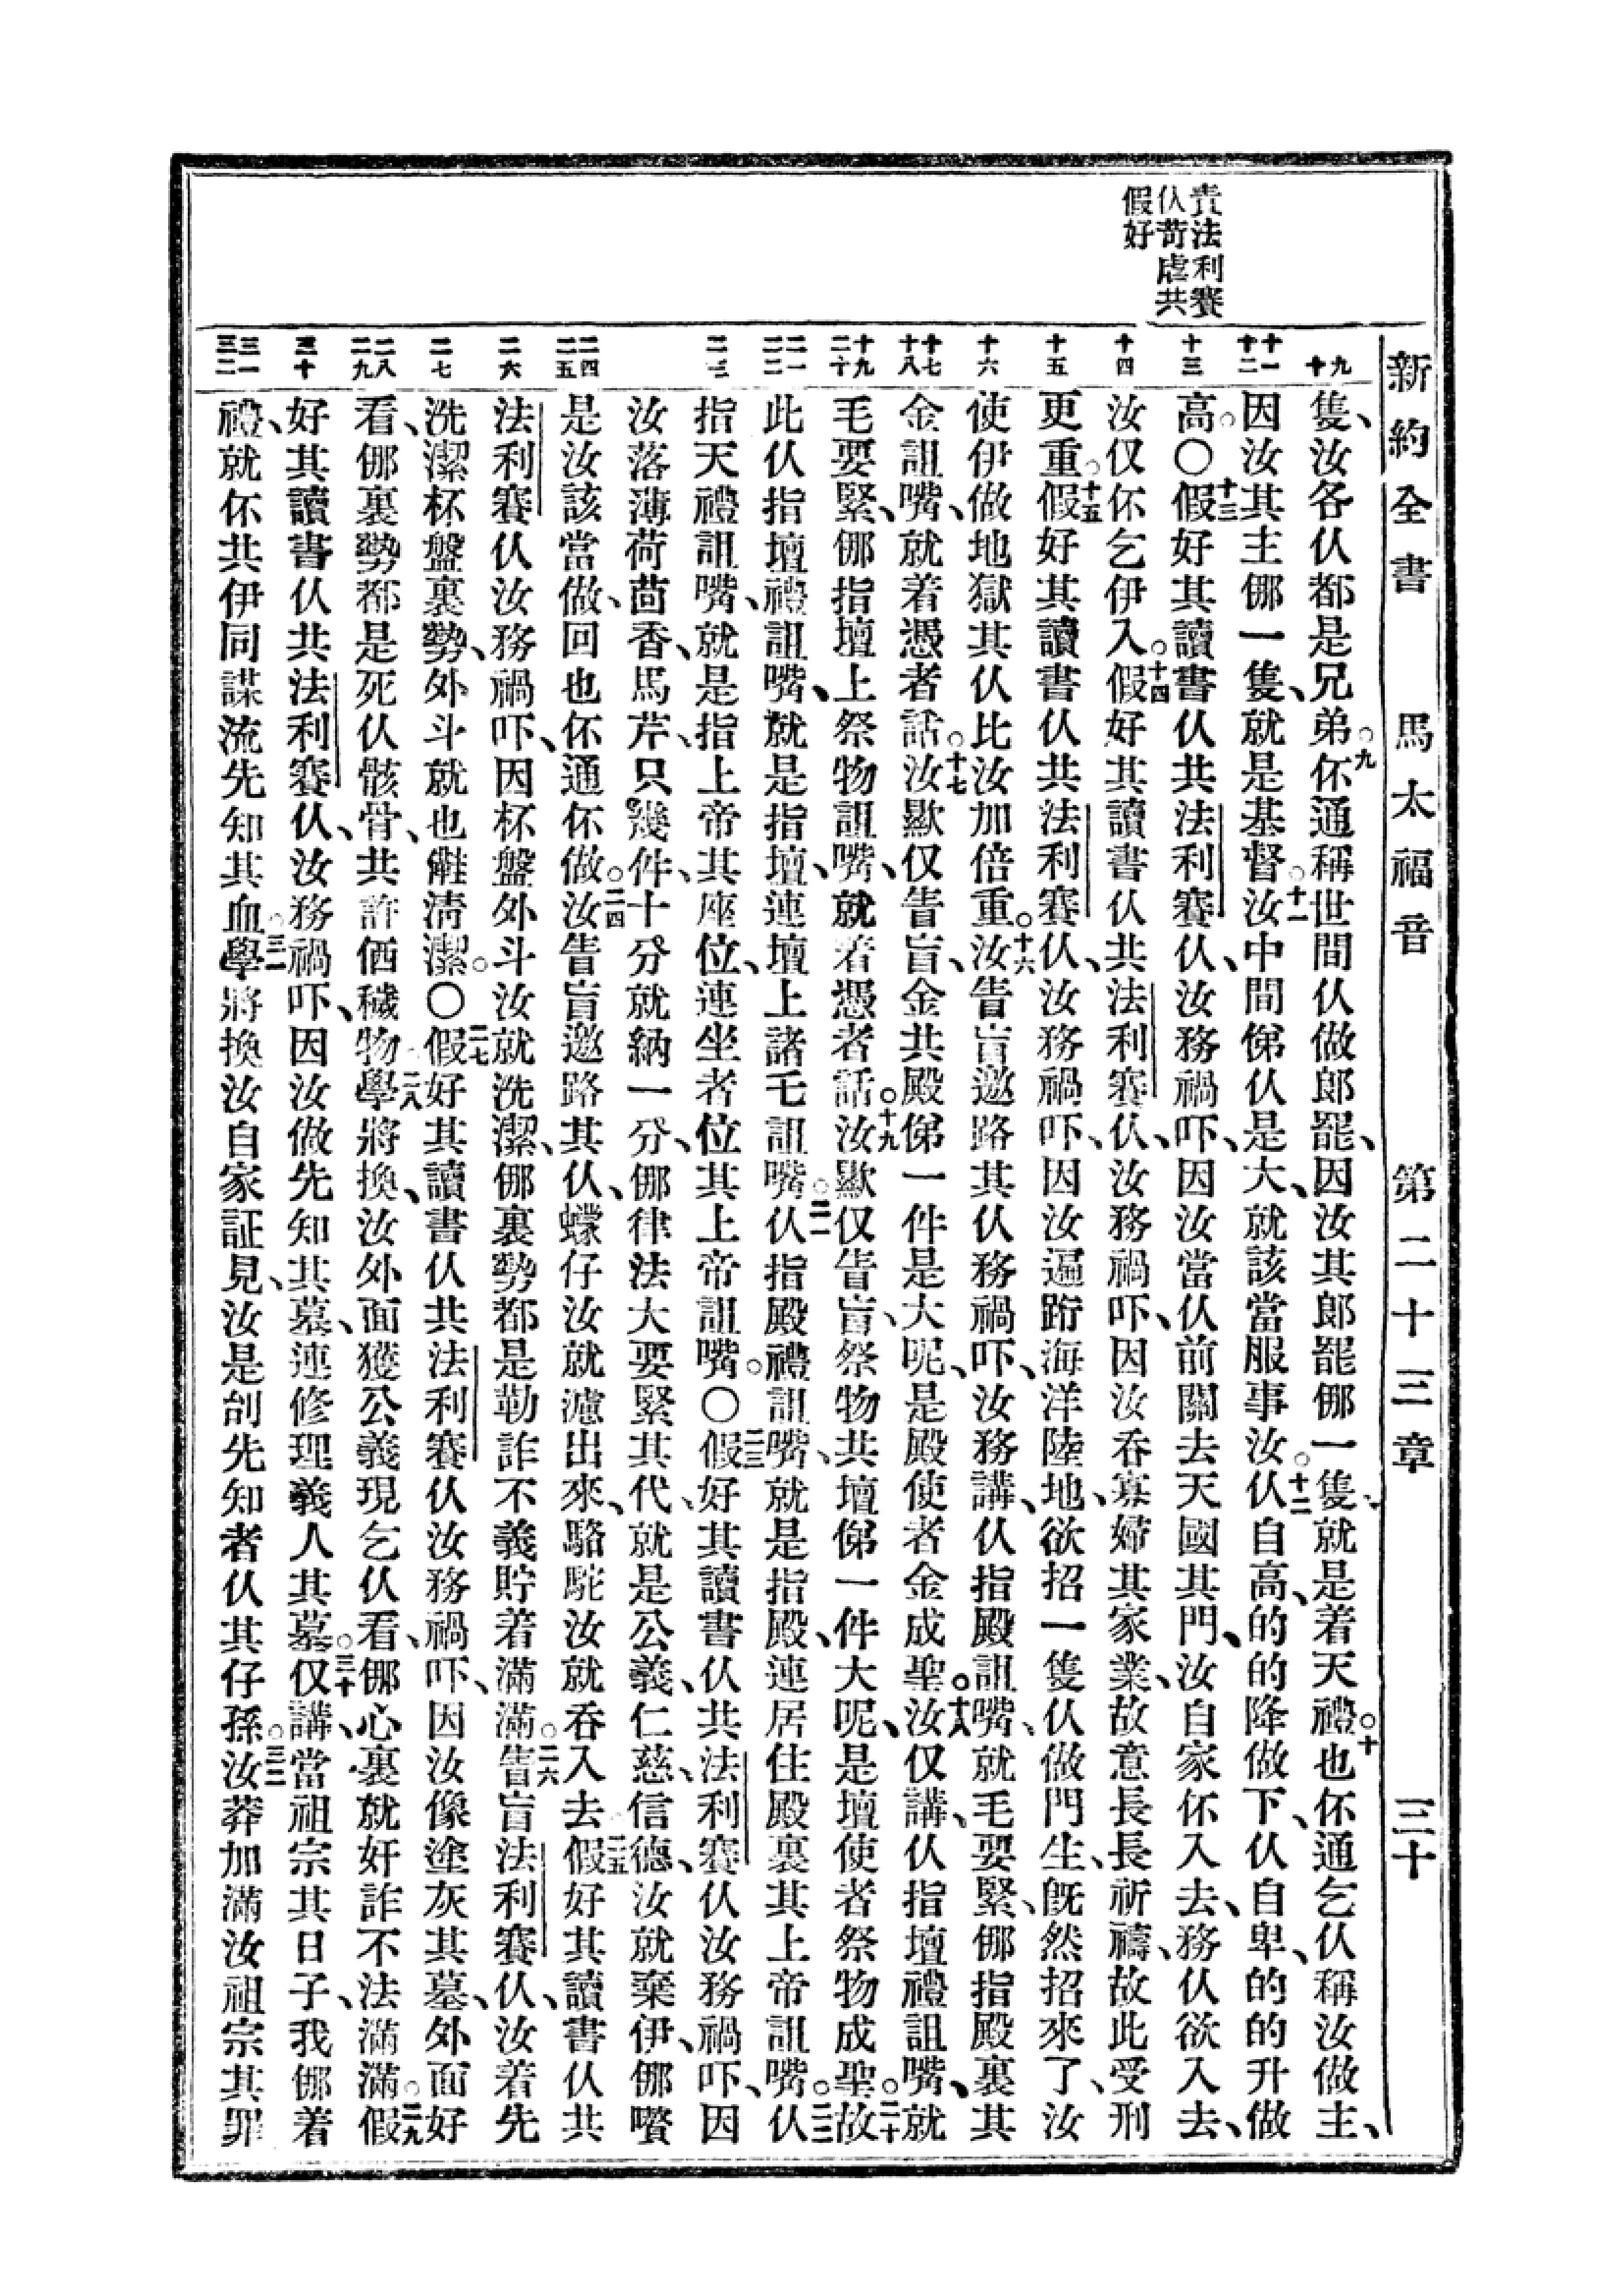 新約全書　馬太福音　第二十三章　三十
責法利賽
仈苛虐共
假好
九
十
十一
十二
十三
十四
十五
十六
十七
十八
十九
二十
二一
二二
二三
二四
二五
二六
二七
二八
二九
三十
三一
三二
隻、汝各仈都是兄弟。九伓通稱世間仈做郎罷、因汝其郎罷㑚一隻、就是着天禮。十也伓通乞仈稱汝做主、
因汝其主㑚一隻、就是基督。十一汝中間俤仈是大、就該當服事汝。十二仈自高、的的降做下、仈自卑、的的升做
高。〇十三假好其讀書仈共法利賽仈、汝務禍吓、因汝當仈前關去天國其門、汝自家伓入去、務仈欲入去、
汝仅伓乞伊入。十四假好其讀書仈共法利賽仈、汝務禍吓、因汝吞寡婦其家業、故意長長祈禱、故此受刑
更重。十五假好其讀書仈共法利賽仈、汝務禍吓、因汝遍跴海洋陸地、欲招一隻仈做門生、旣然招來了、汝
使伊做地獄其仈比汝加倍重。十六汝眚盲邀路其仈務禍吓、汝務講、仈指殿詛嘴、就毛要緊、㑚指殿裏其
金詛嘴、就着憑者話。十七汝歞仅眚盲、金共殿俤一件是大呢、是殿使者金成聖。十八汝仅講、仈指壇禮詛嘴、就
毛要緊、㑚指壇上祭物詛嘴、就着憑者話。十九汝歞仅眚盲、祭物共壇俤一件大呢、是壇使者祭物成聖。二十故
此仈指壇禮詛嘴、就是指壇、連壇上諸乇詛嘴。二一仈指殿禮詛嘴、就是指殿、連居住殿裏其上帝詛嘴。二二仈
指天禮詛嘴、就是指上帝其座位、連坐者位其上帝詛嘴。〇二三假好其讀書仈共法利賽仈汝務禍吓、因
汝落薄荷茴香、馬芹、只幾件、十分就納一分、㑚律法大要緊其代、就是公義、仁慈、信德、汝就棄伊、㑚嚽
是汝該當做、回也伓通伓做。二四汝眚盲邀路其仈、蠓仔汝就濾出來、駱駝汝就吞入去。二五假好其讀書仈共
法利賽仈汝務禍吓、因杯盤外斗汝就洗潔、㑚裏勢都是勒詐不義貯着滿滿。二六眚盲法利賽仈、汝着先
洗潔杯盤裏勢、外斗就也㒸淸潔。〇二七假好其讀書仈共法利賽仈汝務禍吓、因汝像塗灰其墓、外面好
看、㑚裏勢都是死仈骸骨、共許価穢物。二八學將換、汝外面獲公義現乞仈看、㑚心裏就奸詐不法滿滿。二九假
好其讀書仈共法利賽仈、汝務禍吓、因汝做先知其墓、連修理義人其墓。三十仅講、當祖宗其日子、我㑚着
禮、就伓共伊同謀流先知其血。三一學將換汝自家証見、汝是刣先知者仈其仔孫。三二汝莽加滿汝祖宗其罪